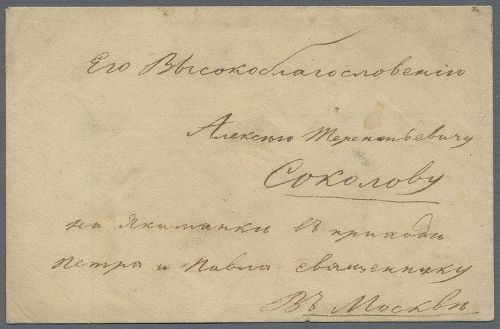 Его Высокоблагословенію
Алексѣю Терентьевичу
Соколову
на Якиманки въ приходи
Петра и Павла священнику
Въ Москвѣ